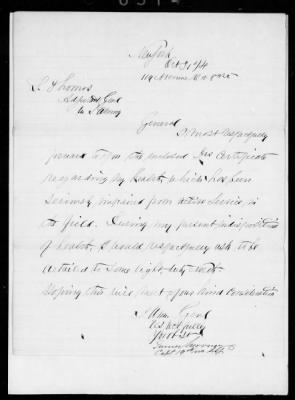 New York
Oct 31 / 64
119 Avenue
L Thomas
Adjutant Genl
U S Army
General
I most respectfully
forward to you the enclosed Drs Certificate
regarding my health, which has been
seriously impaired from active service in
the field. During my present indisposition
of health, I would respectfully ask to be
detailed to some light duty
Hoping this will meet your kind consideration
I am Genl
Very respectfully
Your
Capt